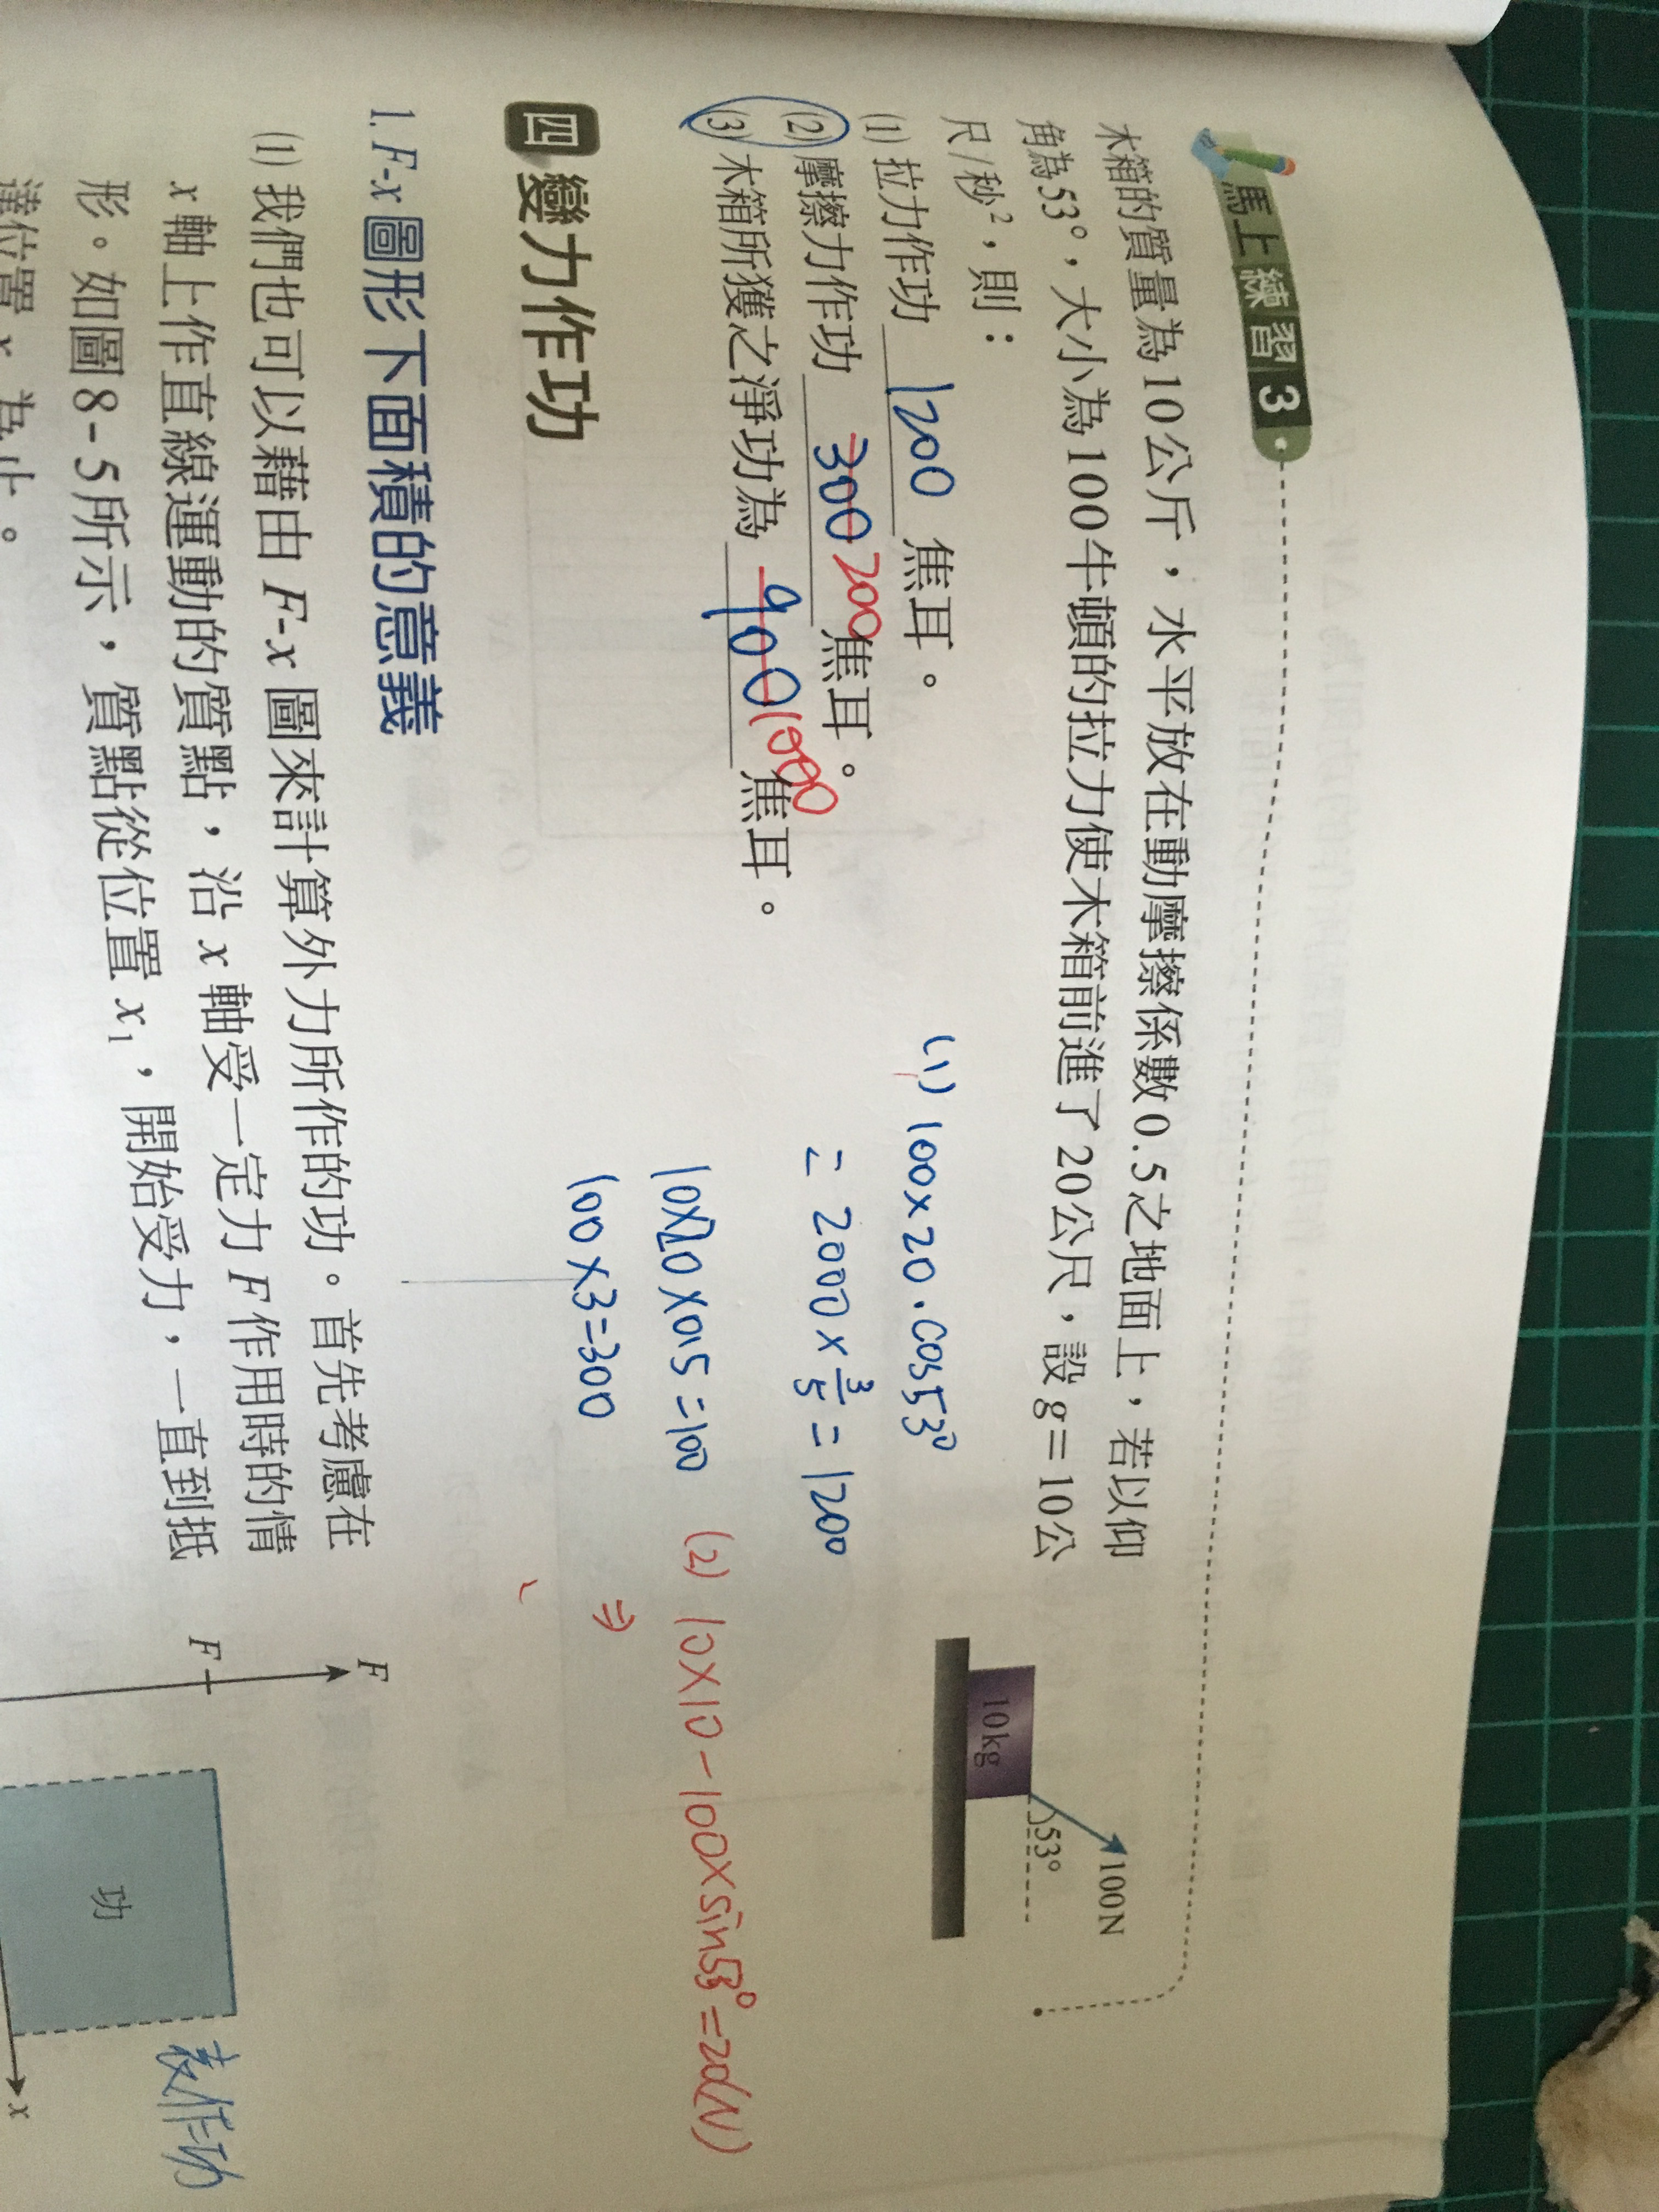 馬上練習3
木箱的質量為10公斤，水平放在動摩擦係數0.5之地面上，若以仰
角為53°，大小為100牛頓的拉力使木箱前進了20公尺，設g＝10公
尺/秒²，則：
(1) 拉力作功 1200 焦耳。
(2) 摩擦力作功 300 200 焦耳。
(3) 木箱所獲之淨功為 900 1000 焦耳。
100N
53°
10kg
(1) 100×20·cos53°
= 2000×3/5 = 1200
10×20×0.5=100
100×3=300
(2) 10×10－100×sin53°=20(N)
⇒
四 變力作功
1. F-x 圖形下面積的意義
(1) 我們也可以藉由 F-x 圖來計算外力所作的功。首先考慮在
x 軸上作直線運動的質點，沿 x 軸受一定力 F 作用時的情
形。如圖8-5所示，質點從位置 x₁，開始受力，一直到抵
達位置 x 為止。
F
F
功
x
表作功